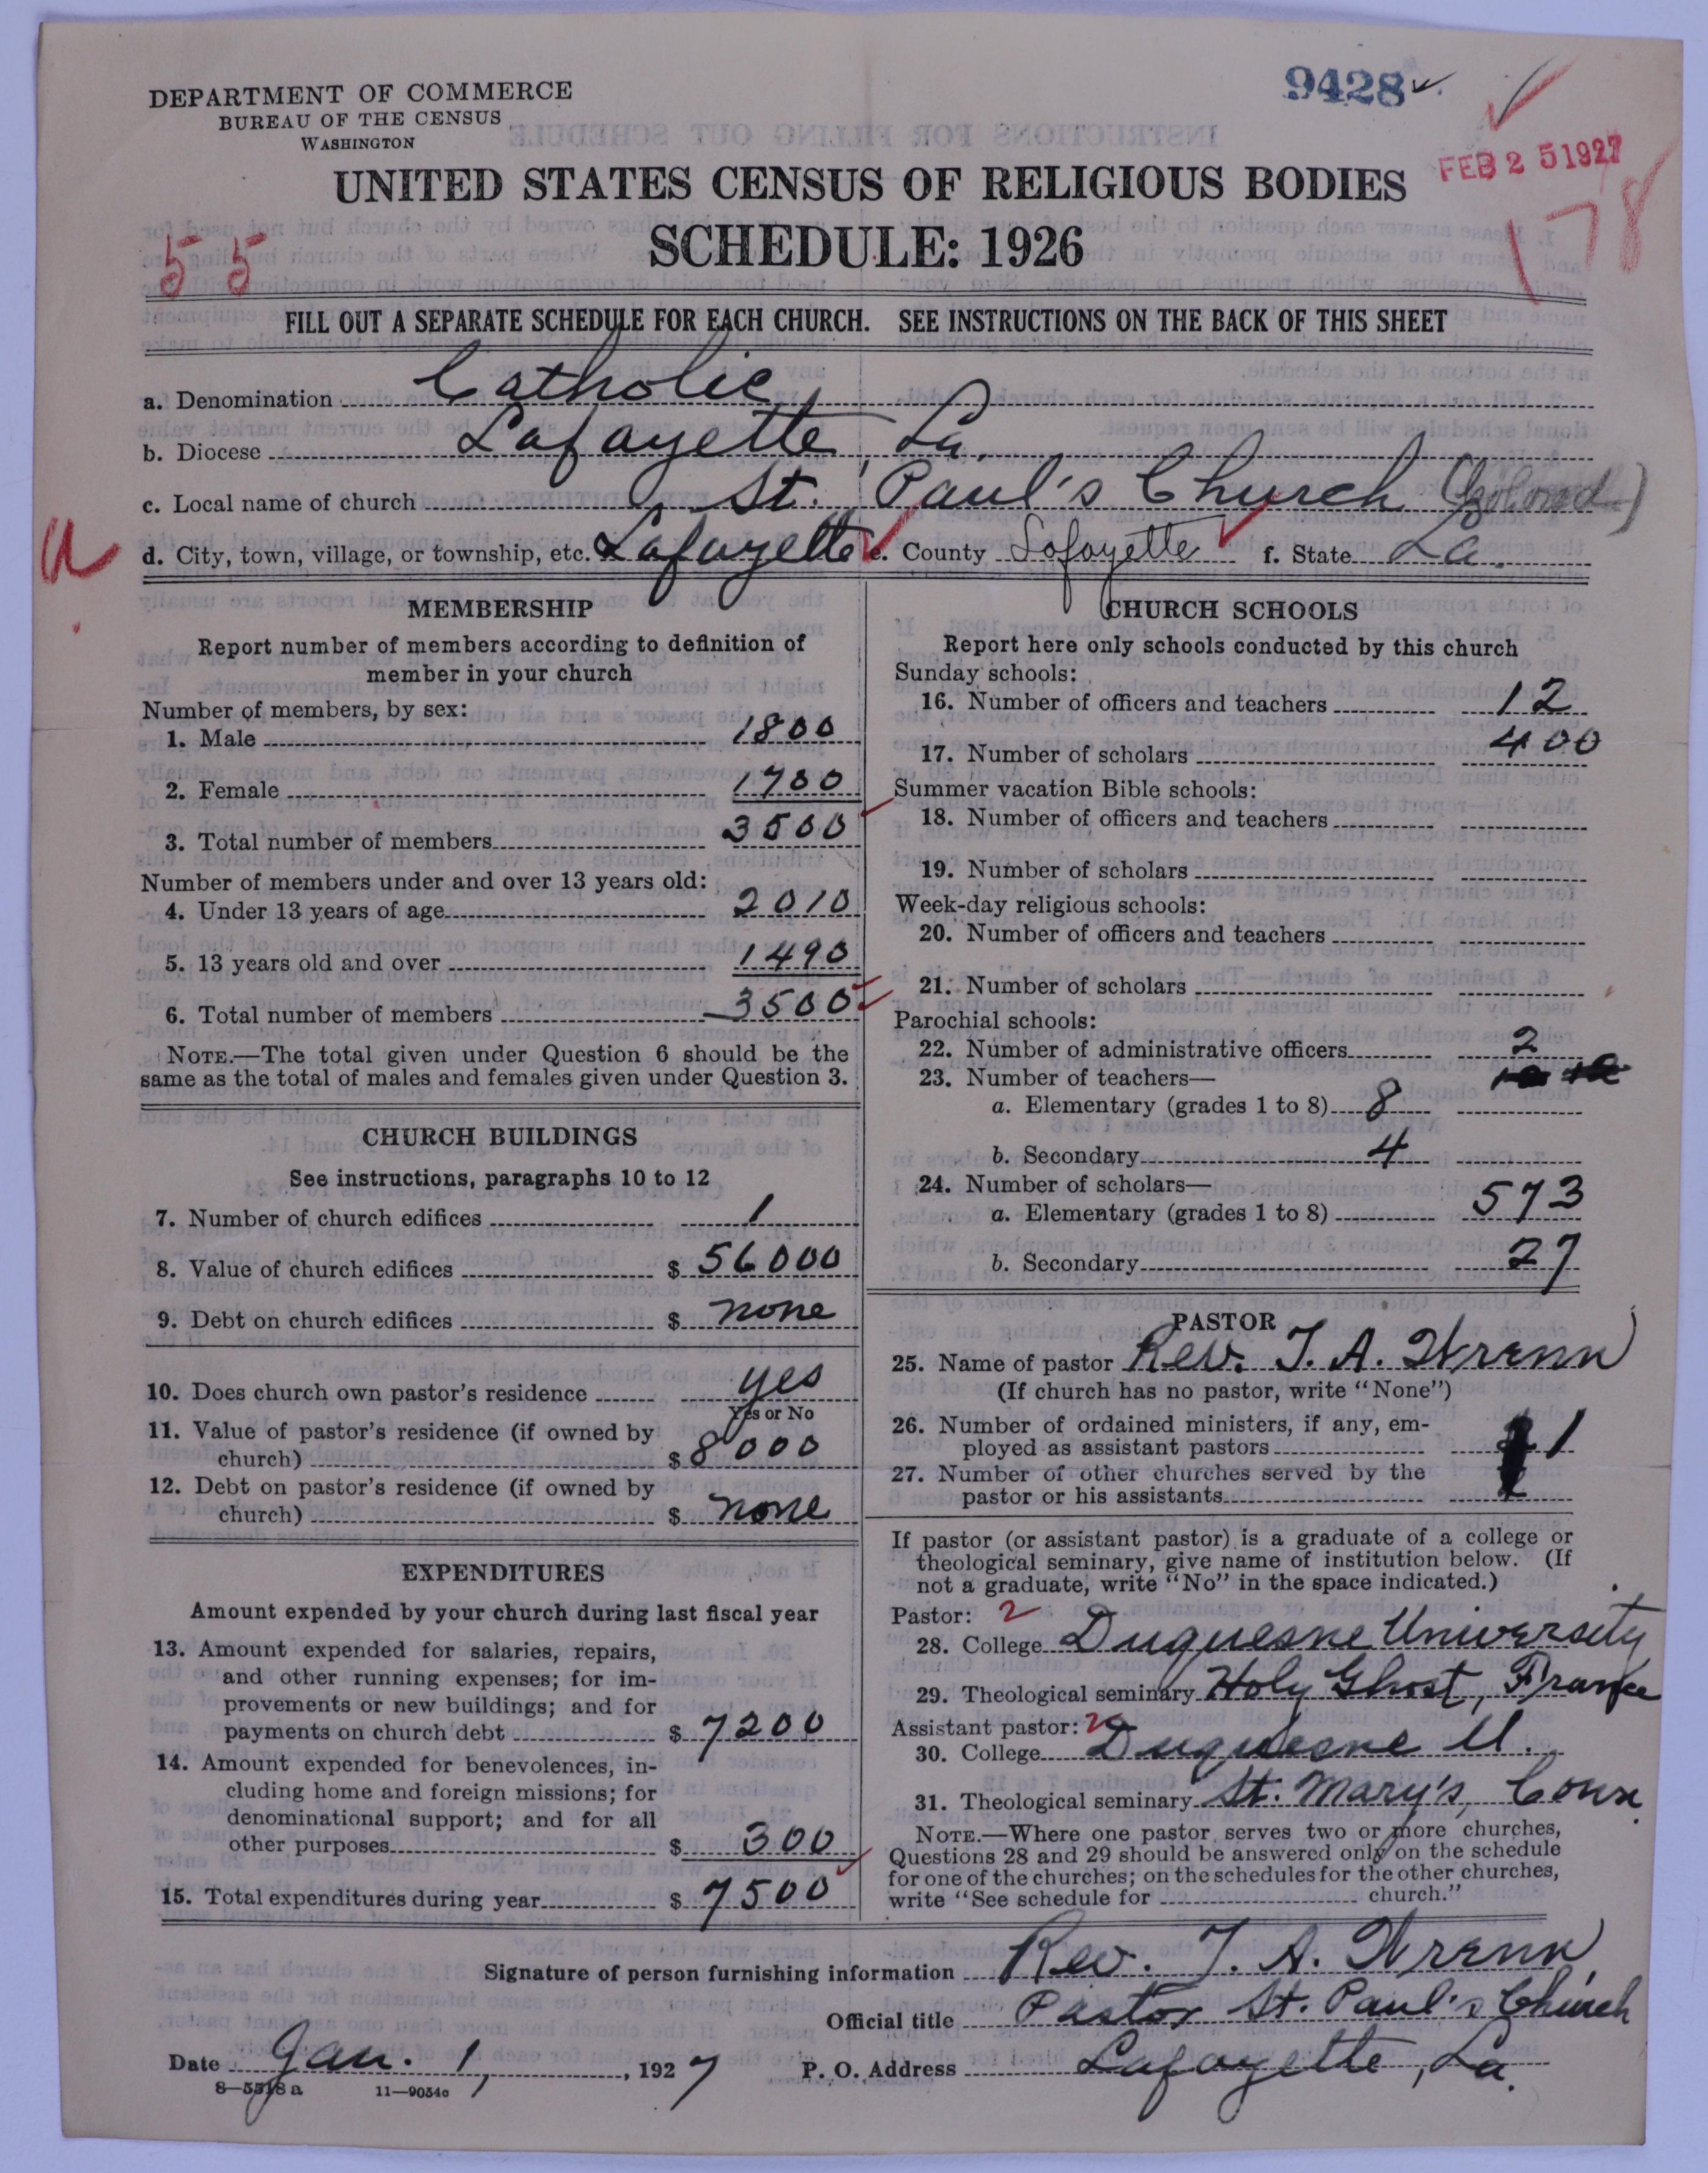 9428
DEPARTMENT OF COMMERCE
BUREAU OF THE CENSUS
WASHINGTON
FEB 25 1927
UNITED STATES CENSUS OF RELIGIOUS BODIES
SCHEDULE: 1926
55
178
FILL OUT A SEPARATE SCHEDULE FOR EACH CHURCH. SEE INSTRUCTIONS ON THE BACK OF THIS SHEET
a. Denomination Catholic
b. Diocese Lafayette, La.
c. Local name of church St. Paul's Church (Colored)
a
d. City, town, village, or township, etc. Lafayette e. County Lafayette f. State La.
MEMBERSHIP
Report number of members according to definition of
member in your church
Number of members, by sex:
1. Male 1800
2. Female 1700
3. Total number of members 3500
Number of members under and over 13 years old:
4. Under 13 years of age 2010
5. 13 years old and over 1490
6. Total number of members 3500
NOTE.—The total given under Question 6 should be the
same as the total of males and females given under Question 3.
CHURCH BUILDINGS
See instructions, paragraphs 10 to 12
7. Number of church edifices 1
8. Value of church edifices $ 56000
9. Debt on church edifices $ none
10. Does church own pastor's residence yes
Yes or No
11. Value of pastor's residence (if owned by
church) $ 8000
12. Debt on pastor's residence (if owned by
church) $ none
EXPENDITURES
Amount expended by your church during last fiscal year
13. Amount expended for salaries, repairs,
and other running expenses; for im-
provements or new buildings; and for
payments on church debt $ 7200
14. Amount expended for benevolences, in-
cluding home and foreign missions; for
denominational support; and for all
other purposes $ 300
15. Total expenditures during year $ 7500
CHURCH SCHOOLS
Report here only schools conducted by this church
Sunday schools:
16. Number of officers and teachers 12
17. Number of scholars 400
Summer vacation Bible schools:
18. Number of officers and teachers
19. Number of scholars
Week-day religious schools:
20. Number of officers and teachers
21. Number of scholars
Parochial schools:
22. Number of administrative officers 2
23. Number of teachers—
a. Elementary (grades 1 to 8) 8
b. Secondary 4
24. Number of scholars—
a. Elementary (grades 1 to 8) 573
b. Secondary 27
PASTOR
25. Name of pastor Rev. J. A. Wrenn
(If church has no pastor, write "None")
26. Number of ordained ministers, if any, em-
ployed as assistant pastors 1
27. Number of other churches served by the
pastor or his assistants
If pastor (or assistant pastor) is a graduate of a college or
theological seminary, give name of institution below. (If
not a graduate, write "No" in the space indicated.)
Pastor: 2
28. College Duquesne University
29. Theological seminary Holy Ghost, France
Assistant pastor: 2
30. College Duquesne U.
31. Theological seminary St. Mary's, Conn.
NOTE.—Where one pastor serves two or more churches,
Questions 28 and 29 should be answered only on the schedule
for one of the churches; on the schedules for the other churches,
write "See schedule for church."
Signature of person furnishing information Rev. J. A. Wrenn
Official title Pastor St. Paul's Church
Date Jan. 1, 1927 P. O. Address Lafayette, La.
8—5518a 11—9054c